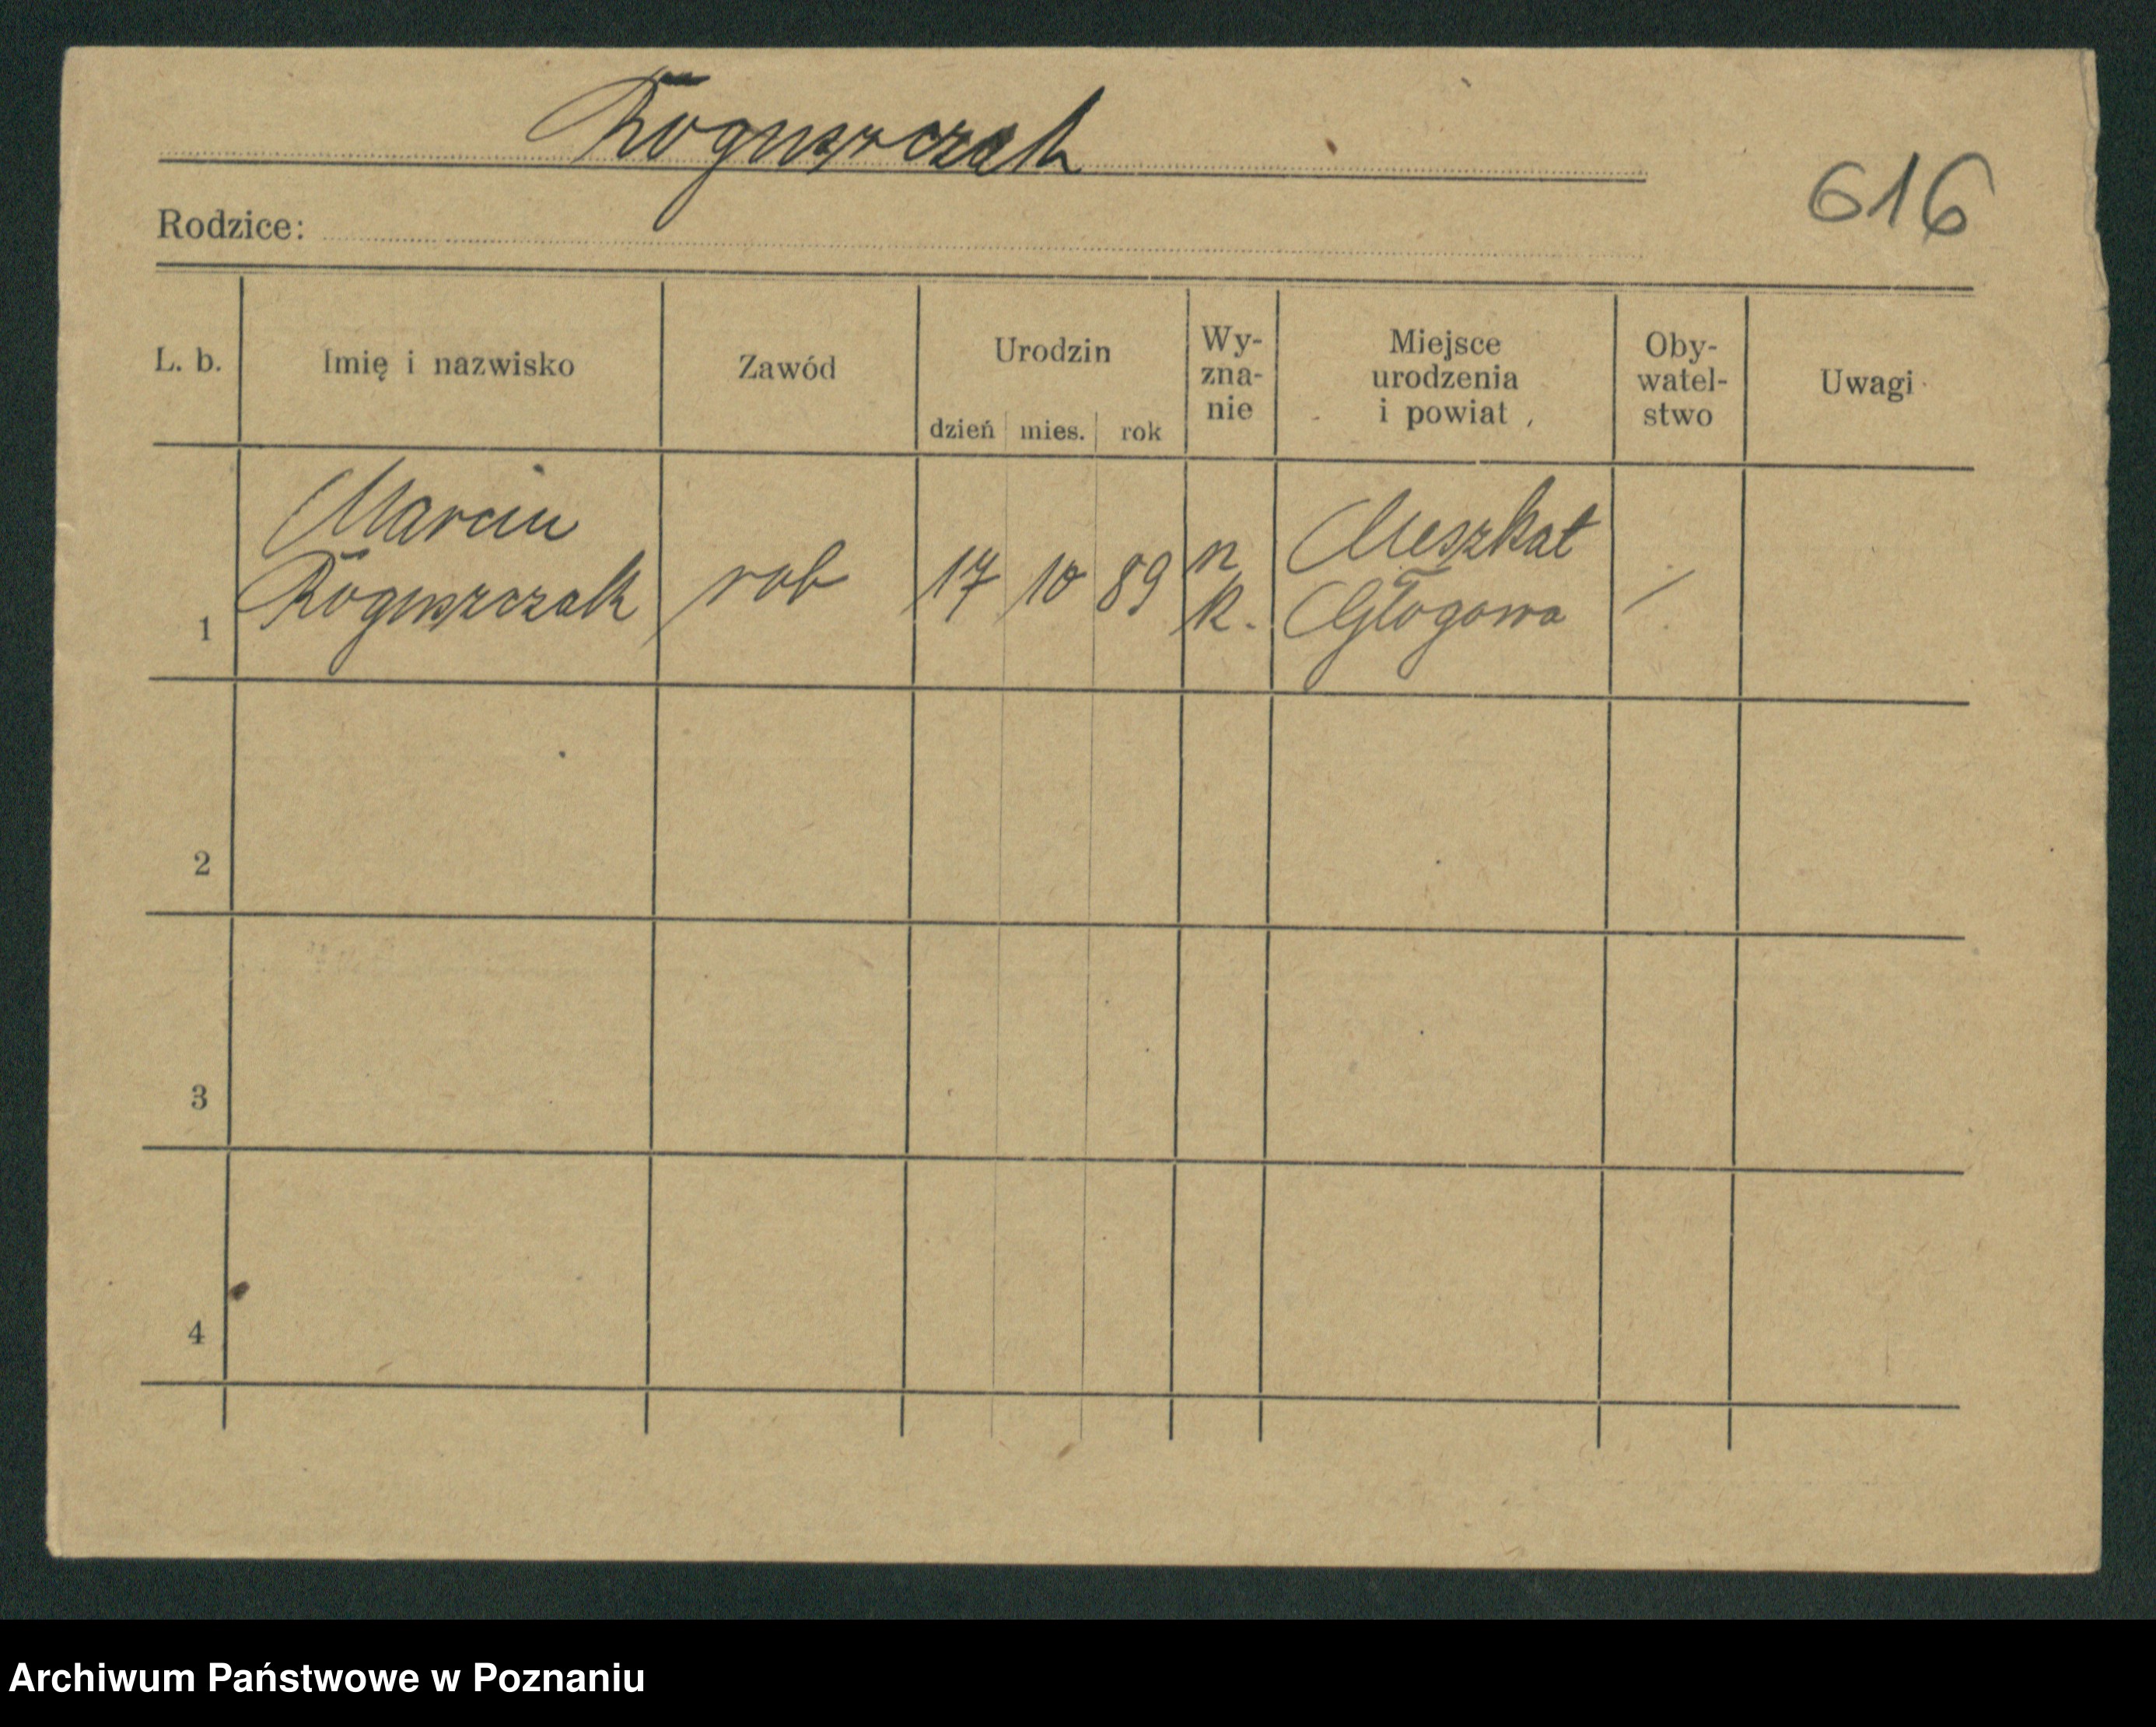 Roguszczak
616
Rodzice:
L. b. Imię i nazwisko Zawód Urodzin dzień mies. rok Wy-zna-nie Miejsce urodzenia i powiat Oby-watel-stwo Uwagi
Marcin
Roguszczak
1 rob 17 10 89 k.
Głogowa
2
3
4
Archiwum Państwowe w Poznaniu